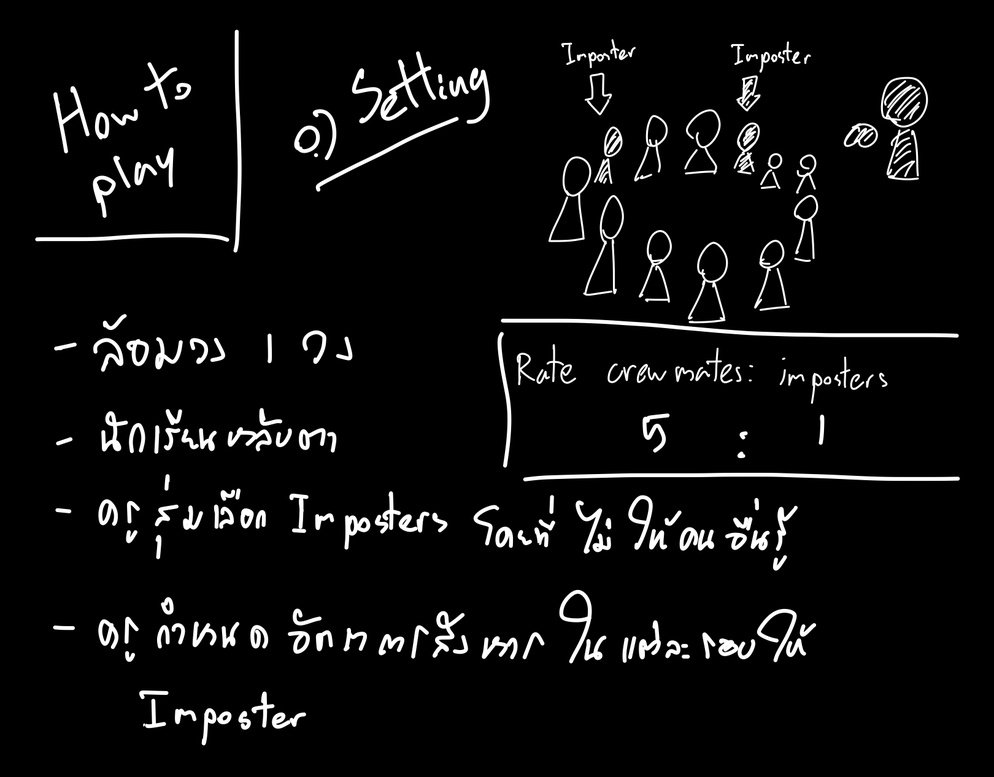 How to
play
0.) Setting
Imposter
Imposter
Rate crewmates: imposters
5 : 1
- ล้อมวง 1 วง
- นักเรียนหลับตา
- ครู สุ่มเลือก Imposters โดยที่ ไม่ ให้คนอื่นรู้
- ครู กำหนด อัตราการสังหาร ใน แต่ละ รอบ ให้
Imposter